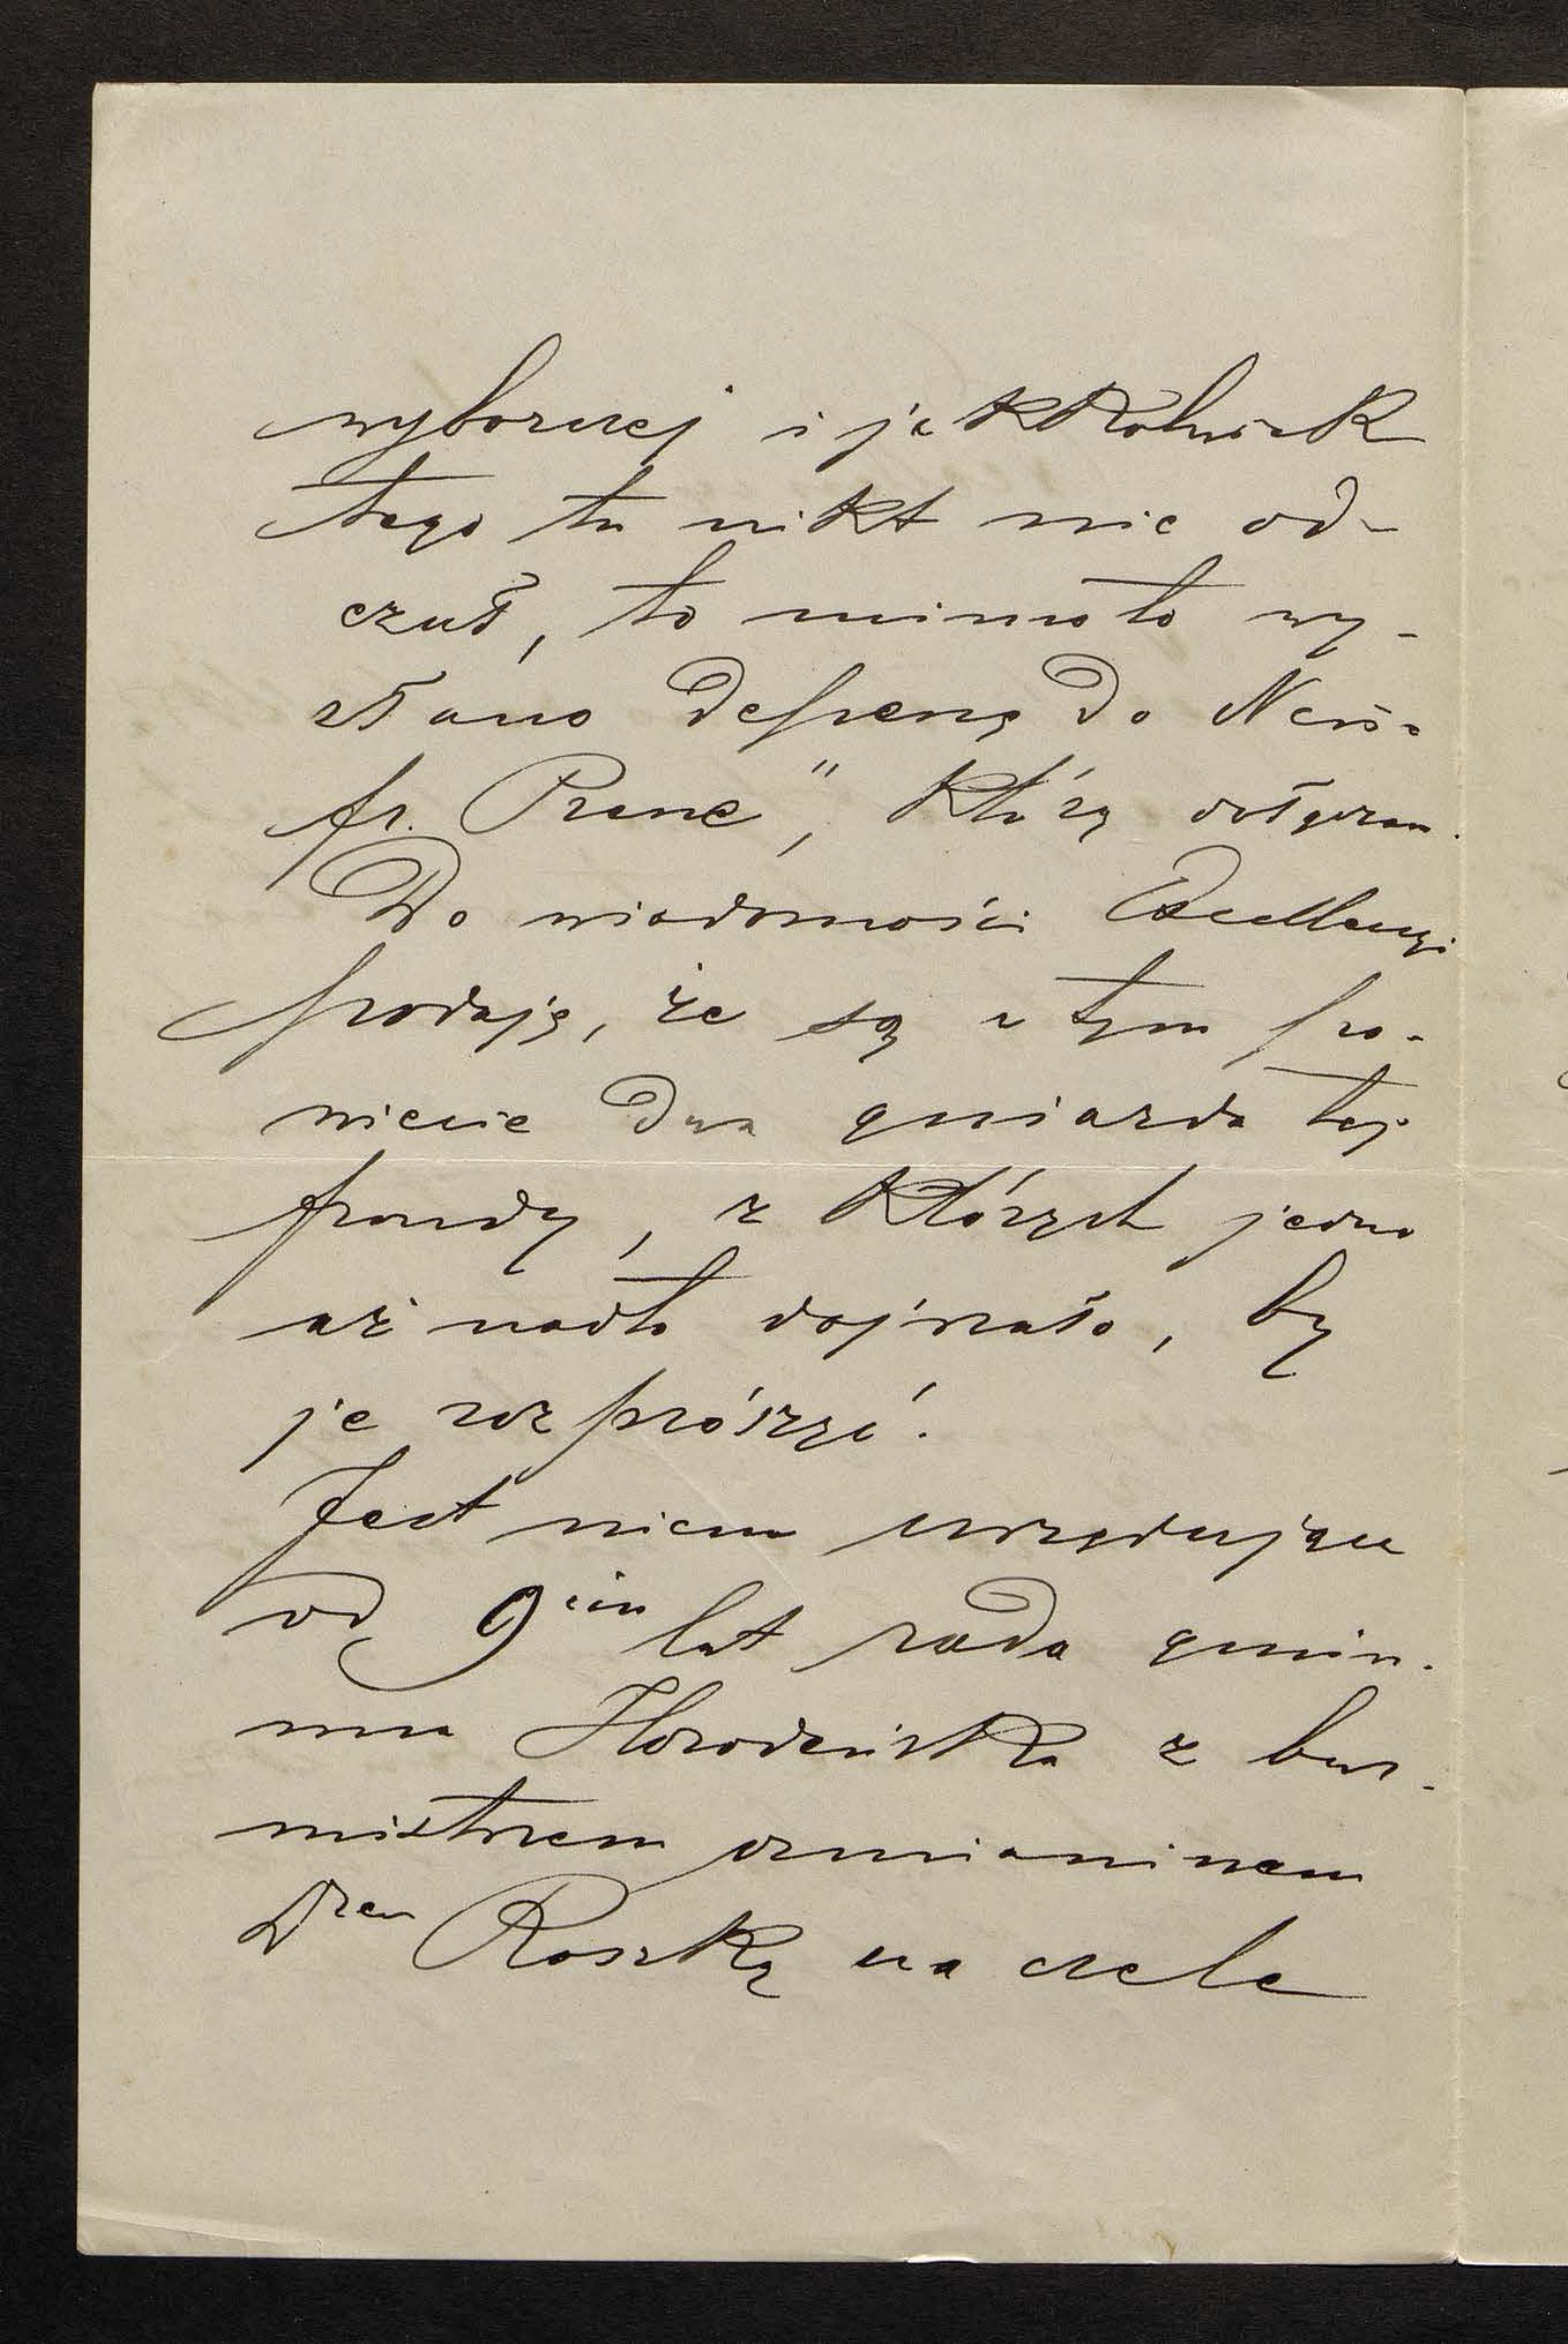 wyborczej i jakkolwiek
tego tu nikt nie od-
czuł, to mimo to wy-
słano depeszę do Neue
fr. Presse", którą dołączam.
Do wiadomości Excellencyi
podaję, że są w tym po-
wiecie dwa gniazda tej
frondy, z których jedno
aż nadto dojrzało, by
je rozprószyć.
Jest niem urzędująca
od 9ciu lat rada gmin-
na Horodeńska z bur-
mistrzem ormianinem
Drem Roszką na czele